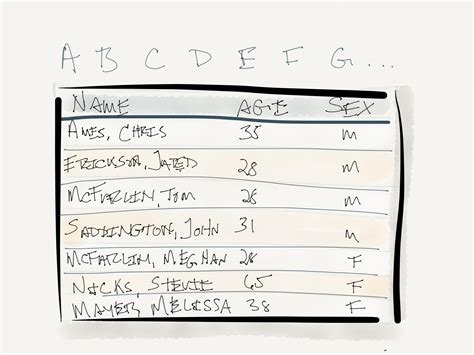 A B C D E F G...
NAME AGE SEX
AMES, CHRIS 35 M
ERICKSON, JARED 28 M
MCFARLIN, TOM 28 M
SADDINGTON, JOHN 31 M
MCFARLIN, MEGHAN 28 F
NICKS, STEVIE 65 F
MAYER, MELISSA 38 F